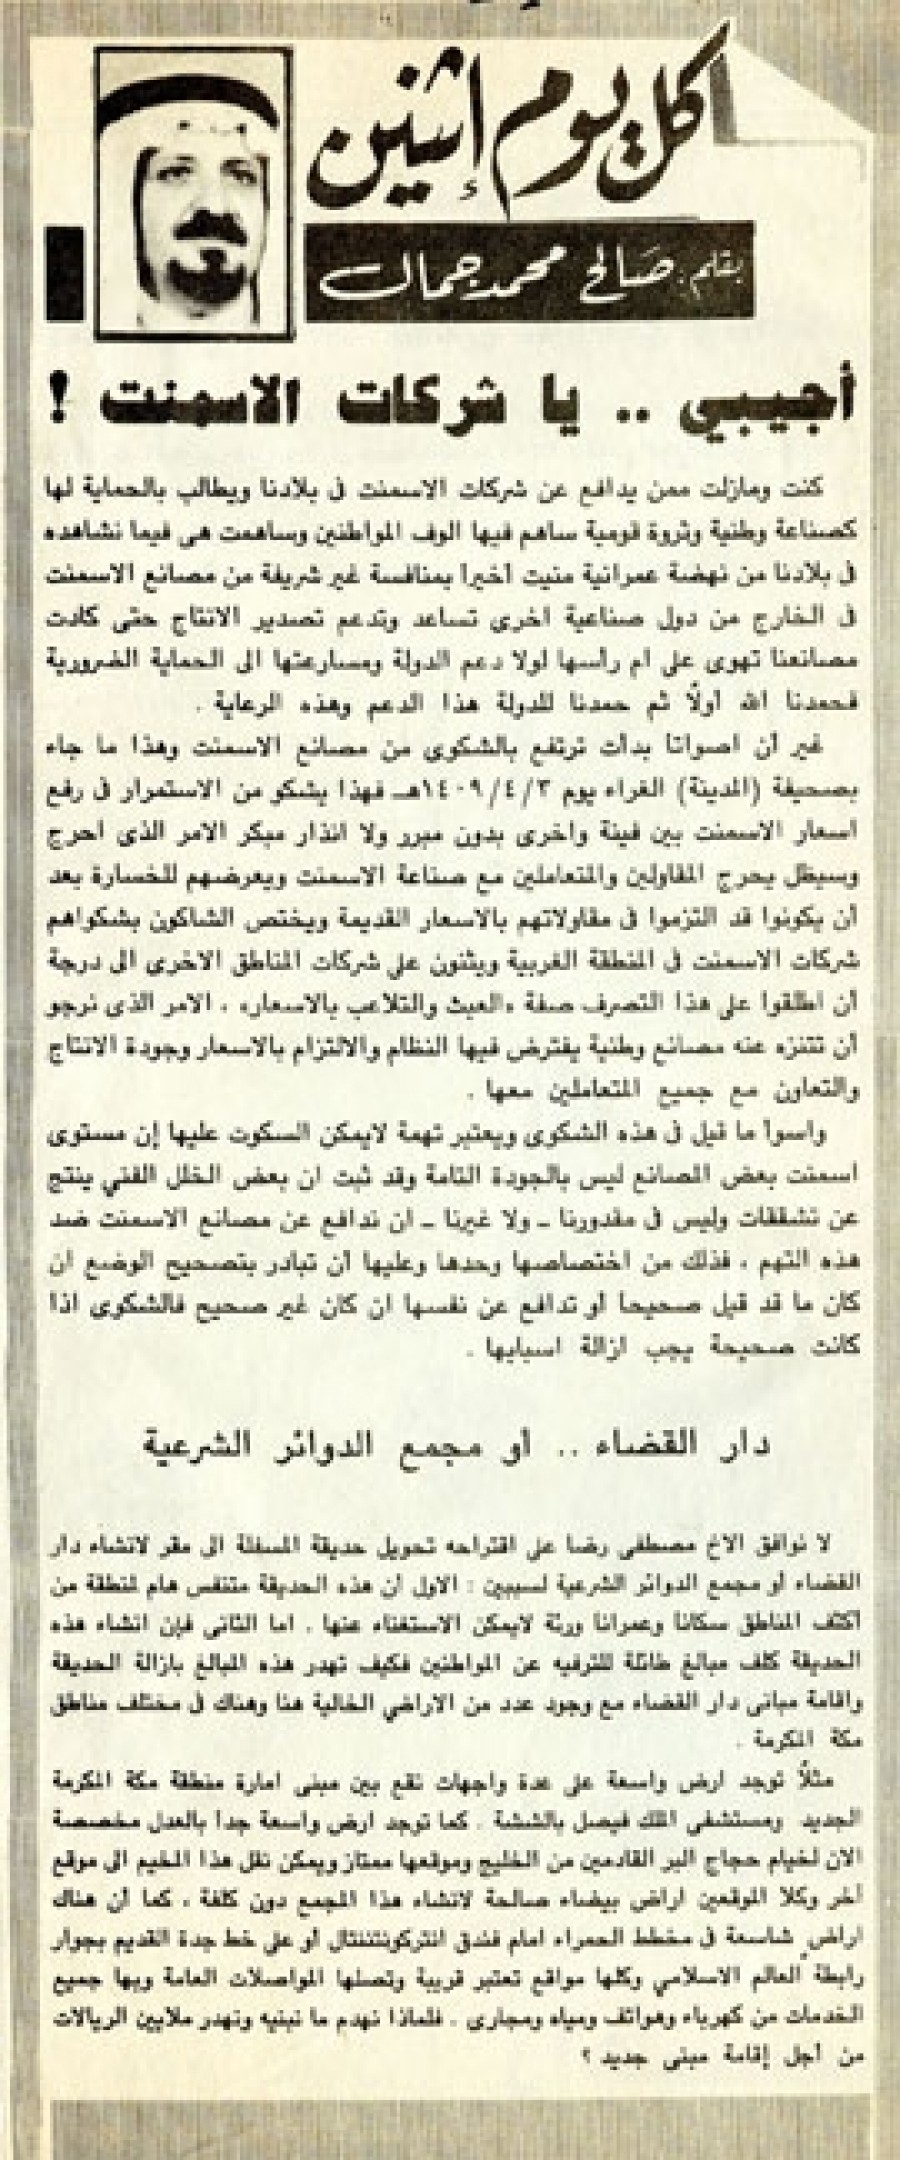 كل يوم إثنين
بقلم: صالح محمد جمال
أجيبي .. يا شركات الاسمنت !
كنت ومازلت ممن يدافع عن شركات الاسمنت فى بلادنا ويطالب بالحماية لها
كصناعة وطنية وثروة قومية ساهم فيها الوف المواطنين وساهمت هى فيما نشاهده
فى بلادنا من نهضة عمرانية منيت أخيراً بمنافسة غير شريفة من مصانع الاسمنت
فى الخارج من دول صناعية اخرى تساعد وتدعم تصدير الانتاج حتى كادت
مصانعنا تهوى على ام رأسها لولا دعم الدولة ومسارعتها الى الحماية الضرورية
فحمدنا الله أولاً ثم حمدنا للدولة هذا الدعم وهذه الرعاية .
غير أن اصواتا بدأت ترتفع بالشكوى من مصانع الاسمنت وهذا ما جاء
بصحيفة (المدينة) الغراء يوم ١٤٠٩/٤/٣هـ فهذا يشكو من الاستمرار فى رفع
اسعار الاسمنت بين فينة واخرى بدون مبرر ولا انذار مبكر الامر الذى احرج
وسيظل يحرج المقاولين والمتعاملين مع صناعة الاسمنت ويعرضهم للخسارة بعد
أن يكونوا قد التزموا فى مقاولاتهم بالاسعار القديمة ويختص الشاكون بشكواهم
شركات الاسمنت فى المنطقة الغربية ويثنون على شركات المناطق الاخرى الى درجة
أن اطلقوا على هذا التصرف صفة «العبث والتلاعب بالاسعار» ، الامر الذى نرجو
أن تتنزه عنه مصانع وطنية يفترض فيها النظام والالتزام بالاسعار وجودة الانتاج
والتعاون مع جميع المتعاملين معها .
واسوأ ما قيل فى هذه الشكوى ويعتبر تهمة لايمكن السكوت عليها إن مستوى
اسمنت بعض المصانع ليس بالجودة التامة وقد ثبت ان بعض الخلل الفني ينتج
عن تشققات وليس فى مقدورنا ـ ولا غيرنا ـ ان ندافع عن مصانع الاسمنت ضد
هذه التهم ، فذلك من اختصاصها وحدها وعليها أن تبادر بتصحيح الوضع ان
كان ما قد قيل صحيحا أو تدافع عن نفسها ان كان غير صحيح فالشكوى اذا
كانت صحيحة يجب ازالة اسبابها .
دار القضاء .. أو مجمع الدوائر الشرعية
لا نوافق الاخ مصطفى رضا على اقتراحه تحويل حديقة المسفلة الى مقر لانشاء دار
القضاء أو مجمع الدوائر الشرعية لسببين : الاول أن هذه الحديقة متنفس هام لمنطقة من
أكثف المناطق سكانا وعمرانا ورئة لايمكن الاستغناء عنها . اما الثانى فإن انشاء هذه
الحديقة كلف مبالغ طائلة للترفيه عن المواطنين فكيف تهدر هذه المبالغ بازالة الحديقة
واقامة مبانى دار القضاء مع وجود عدد من الاراضي الخالية هنا وهناك فى مختلف مناطق
مكة المكرمة .
مثلاً توجد ارض واسعة على عدة واجهات تقع بين مبنى امارة منطقة مكة المكرمة
الجديد ومستشفى الملك فيصل بالششة . كما توجد ارض واسعة جداً بالعدل مخصصة
الان لخيام حجاج البر القادمين من الخليج وموقعها ممتاز ويمكن نقل هذا المخيم الى موقع
أخر وكلا الموقعين اراض بيضاء صالحة لانشاء هذا المجمع دون كلفة ، كما أن هناك
اراض شاسعة فى مخطط الحمراء امام فندق انتركونتننتال أو على خط جدة القديم بجوار
رابطة العالم الاسلامي وكلها مواقع تعتبر قريبة وتصلها المواصلات العامة وبها جميع
الخدمات من كهرباء وهواتف ومياه ومجارى . فلماذا نهدم ما نبنيه ونهدر ملايين الريالات
من أجل إقامة مبنى جديد ؟